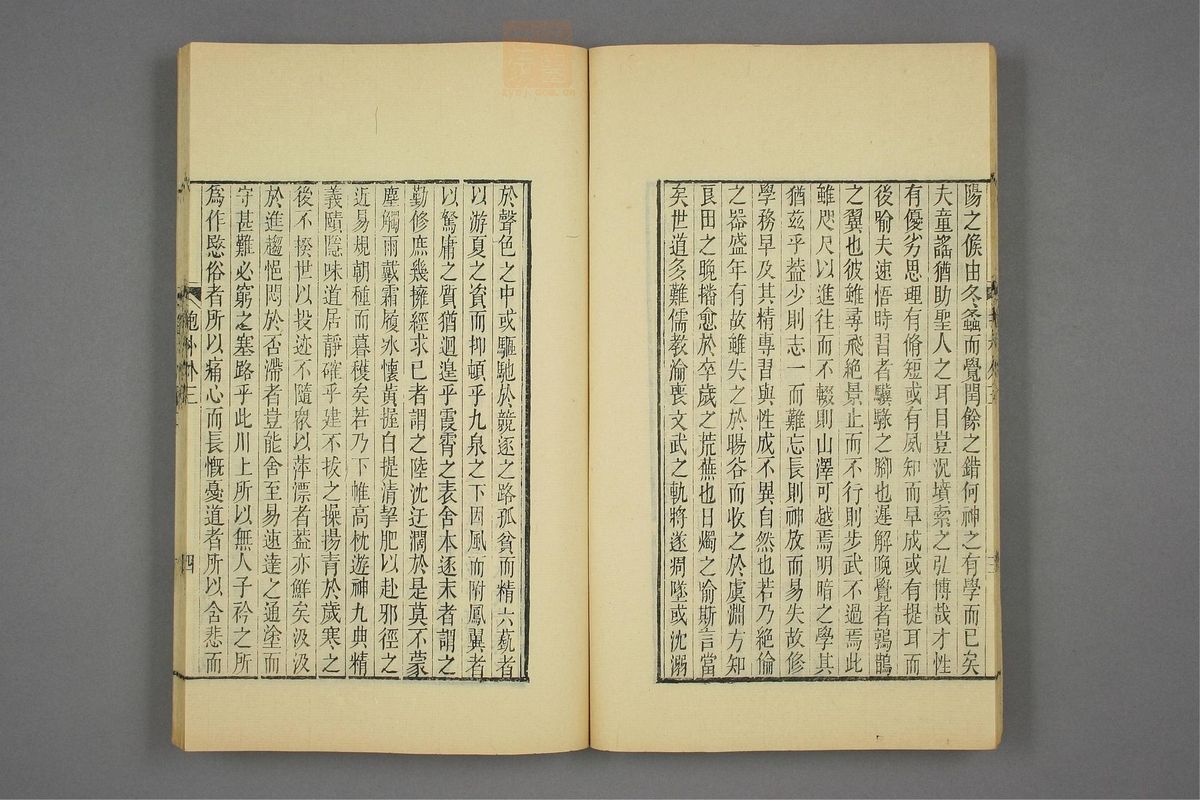 陽之候由冬螽而覺閏餘之錯何神之有學而已矣
夫童謠猶助聖人之耳目豈況墳索之弘博哉才性
有優劣思理有脩短或有夙知而早成或有提耳而
後喻夫速悟時習者驥騄之腳也遲解晚覺者鶉鵲
之翼也彼雖尋飛絕景止而不行則步武不過焉此
雖咫尺以進往而不輟則山澤可越焉明暗之學其
猶茲乎蓋少則志一而難忘長則神放而易失故修
學務早及其精專習與性成不異自然也若乃絕倫
之器盛年有故雖失之於暘谷而收之於虞淵方知
良田之晚播愈於卒歲之荒蕪也日燭之喻斯言當
矣世道多難儒教淪喪文武之軌將遂凋墜或沈溺
於聲色之中或驅馳於競逐之路孤貧而精六藝者
以游夏之資而抑頓乎九泉之下因風而附鳳翼者
以駑庸之質猶迴遑乎霞霄之表舍本逐末者謂之
勤修庶幾擁經求已者謂之陸沈迂闊於是莫不蒙
塵觸雨戴霜履冰懷黃握白提清挈肥以赴邪徑之
近易規朝種而暮穫矣若乃下帷高枕遊神九典精
義賾隱味道居靜確乎建不拔之操揚青於歲寒之
後不揆世以投迹不隨眾以萍漂者蓋亦鮮矣汲汲
於進趨悒悶於否滯者豈能舍至易速達之通塗而
守甚難必窮之塞路乎此川上所以無人子衿之所
為作愍俗者所以痛心而長慨憂道者所以含悲而
抱朴外三
四